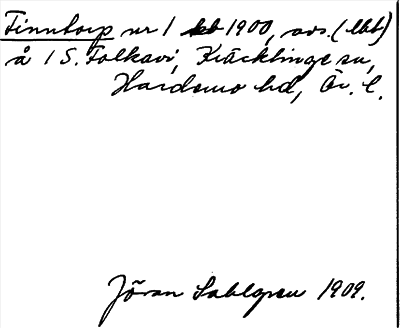 Finntorp nr 1 kb 1900, avs. (lbt)
å 1 S. Folkavi, Kräcklinge sn,
Hardemo hd, Ör. l.
Jöran Sahlgren 1909.